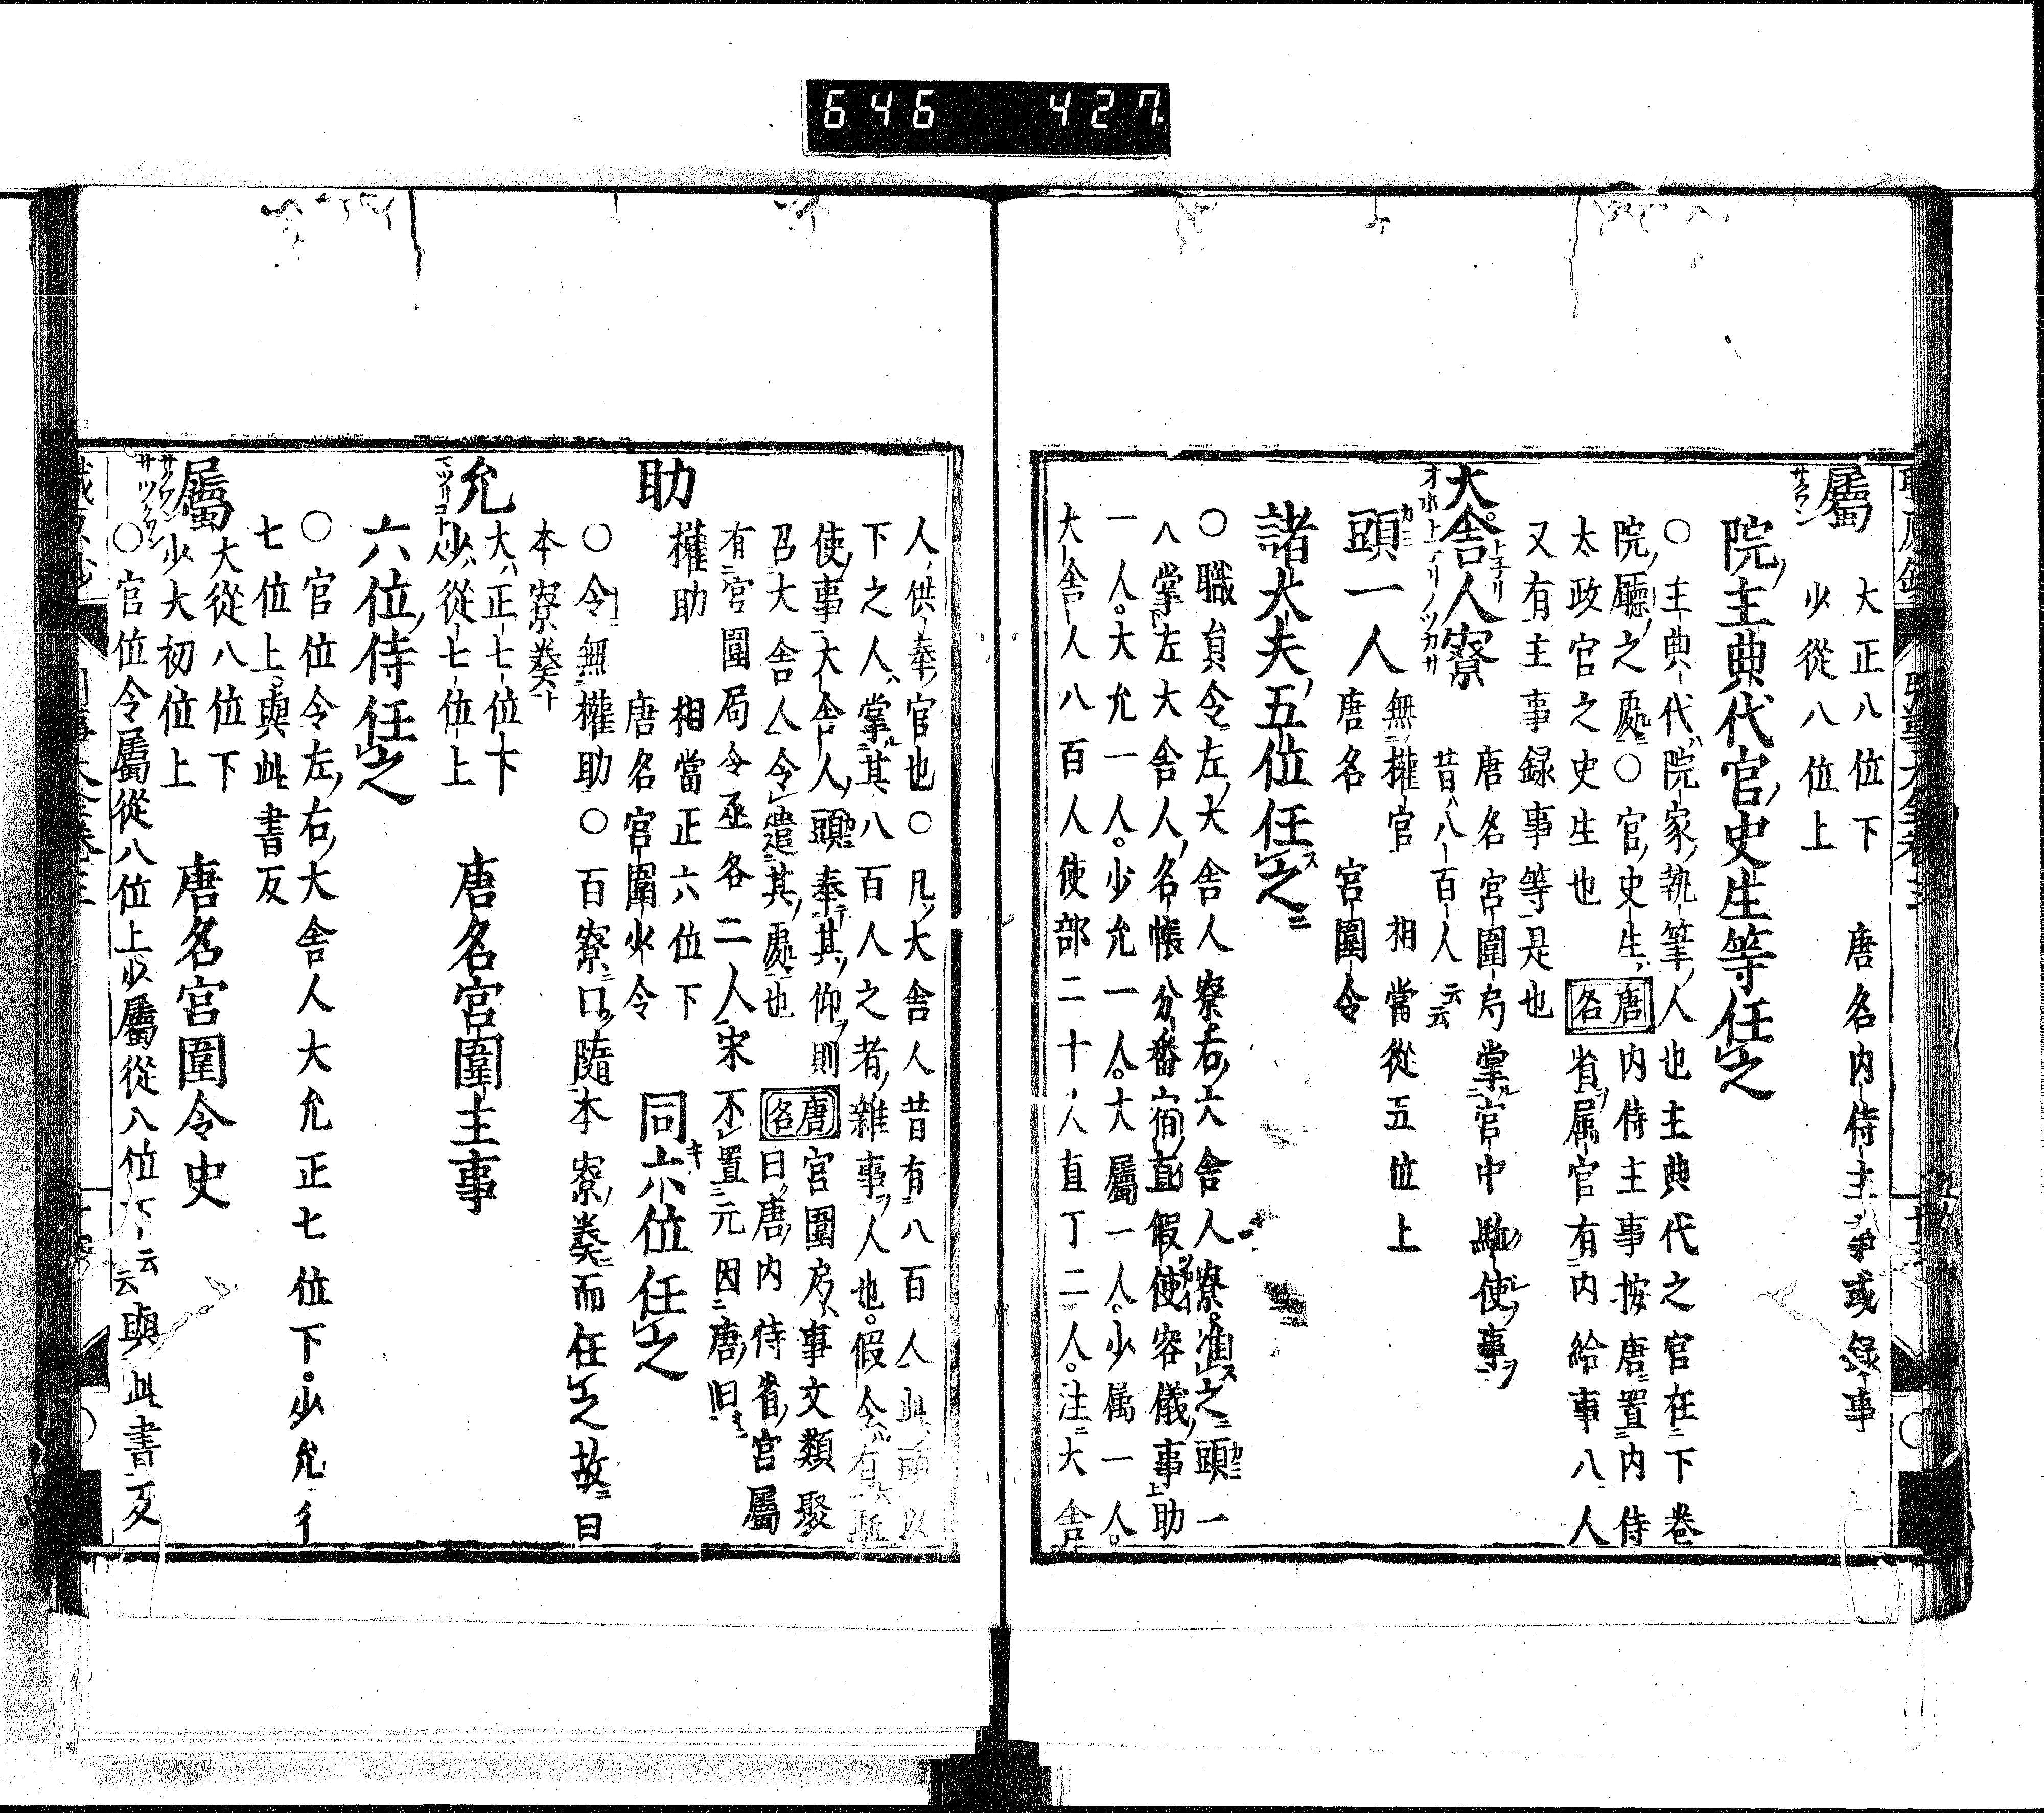 646 427.
屬 大正八位下 唐名内侍主事或録事
サクワン 少從八位上
院主典代官史生等任之
○主典代院家執筆人也主典代之官在下卷
院廳之處○官史生唐名内侍主事按唐置内侍
太政官之史生也 省属官有内給事八人
又有主事録事等是也
大舍人寮 唐名宮圍局掌官中駈使事
オホトネリノツカサ 昔八百人云云
頭一人 無權官 相當從五位上
唐名 宮圍令
諸大夫五位任之
○職員令左大舍人寮右大舍人寮准之頭一
人掌左大舍人名帳分番宿直假使容儀事助
一人。大允一人。少允一人。大屬一人。少属一人。
大舍人八百人使部二十人直丁二人。注大舍
人供奉官也○凡大舍人昔有八百人此頭以
下之人掌其八百人之者雜事人也。假令有駈
使事大舍人頭奉其仰則唐名宮圍局事文類聚
召大舍人令遣其處也 曰唐内侍省宮屬
有官圍局令丞各二人宋不置元因唐旧
助 權助 相當正六位下 同六位任之
唐名宮圍少令
○令無權助○百寮口隨本寮奏而任之故曰
本寮奏
允 大正七位下 唐名宮圍主事
少從七位上
六位侍任之
○官位令左右大舍人大允正七位下。少允從
七位上。與此書反
屬 大從八位下 唐名宮圍令史
サクワン 少大初位上
サツクワン
○官位令屬從八位上少屬從八位下云云與此書反